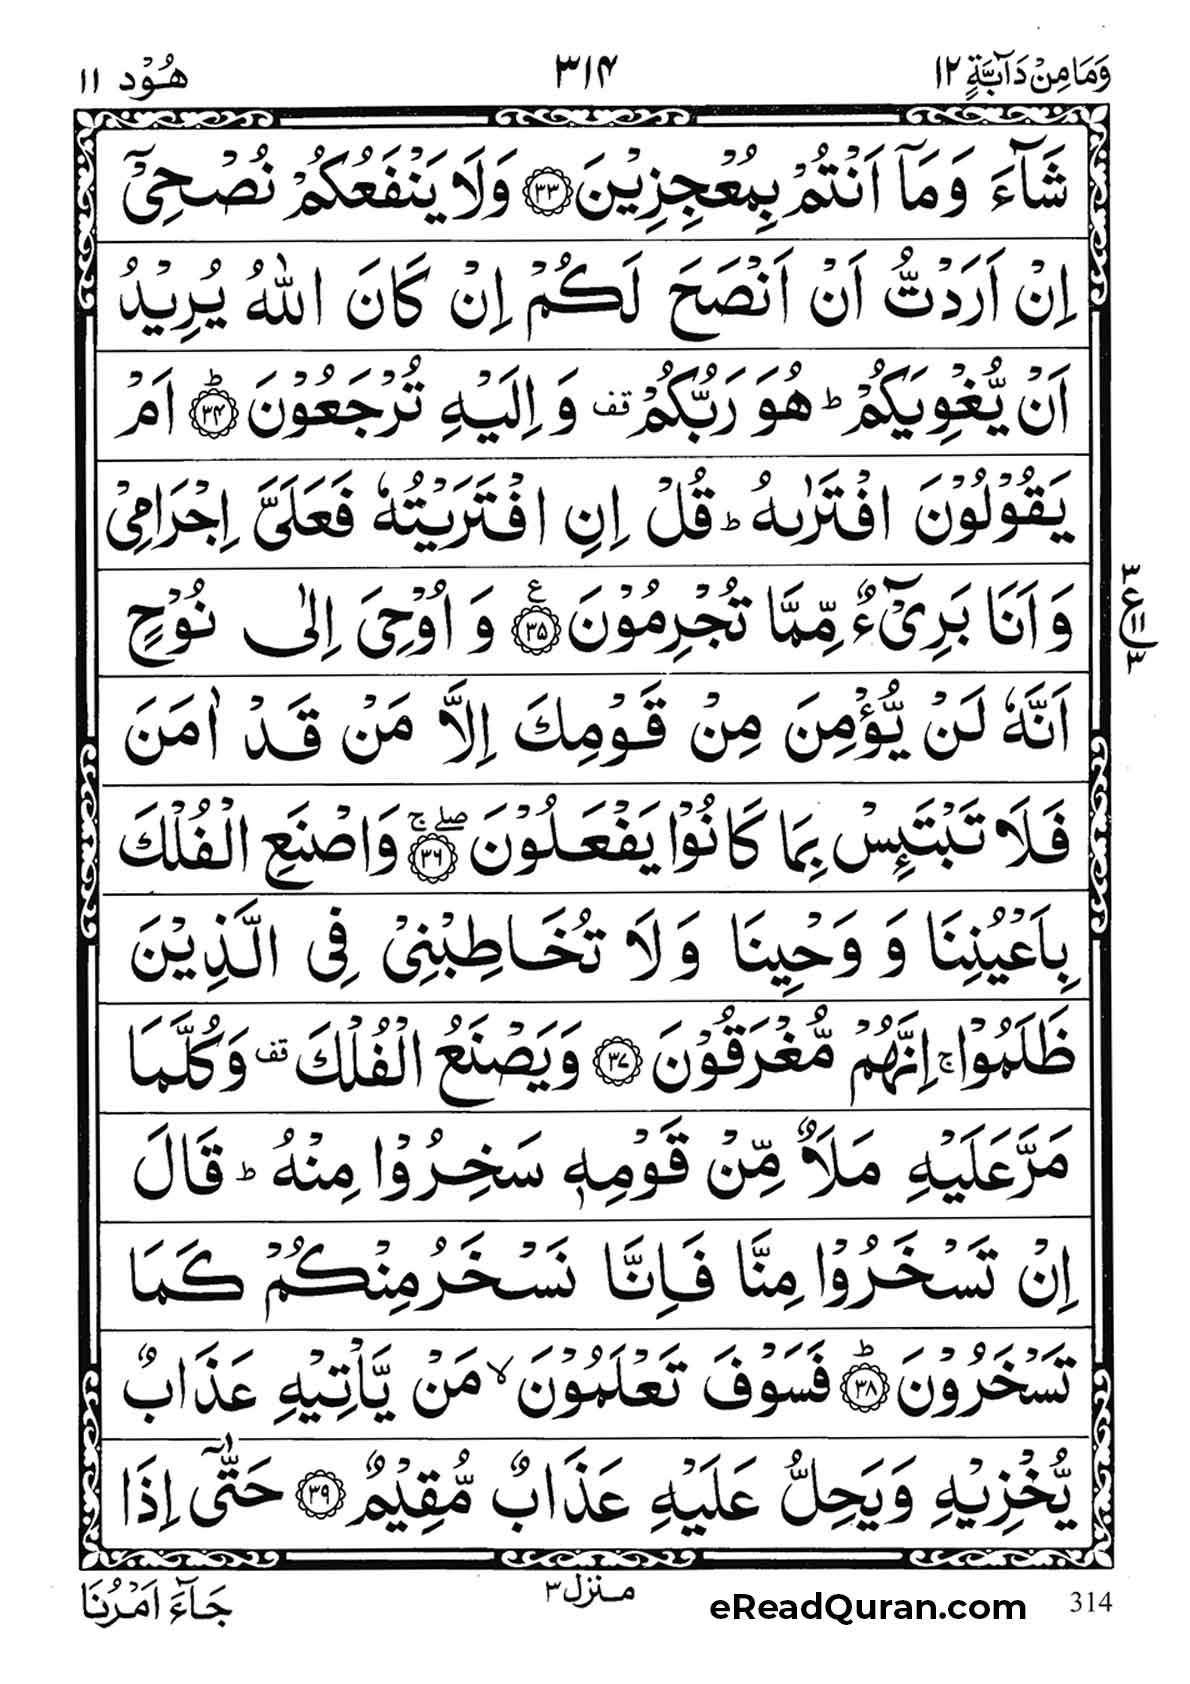 وَمَا مِنْ دَآبَّةٍ ١٢
٣١۴
هُوْد ١١
شَآءَ وَمَآ اَنْتُمْ بِمُعْجِزِيْنَ ۝٣٣ وَلَا يَنْفَعُكُمْ نُصْحِيْٓ
اِنْ اَرَدْتُّ اَنْ اَنْصَحَ لَكُمْ اِنْ كَانَ اللّٰهُ يُرِيْدُ
اَنْ يُّغْوِيَكُمْ ؕ هُوَ رَبُّكُمْ قف وَ اِلَيْهِ تُرْجَعُوْنَ ؕ۝٣۴ اَمْ
يَقُوْلُوْنَ افْتَرٰىهُ ؕ قُلْ اِنِ افْتَرَيْتُهٗ فَعَلَيَّ اِجْرَامِيْ
وَ اَنَا بَرِيْٓءٌ مِّمَّا تُجْرِمُوْنَ ع۝٣۵ وَ اُوْحِيَ اِلٰى نُوْحٍ
اَنَّهٗ لَنْ يُّؤْمِنَ مِنْ قَوْمِكَ اِلَّا مَنْ قَدْ اٰمَنَ
فَلَا تَبْتَئِسْ بِمَا كَانُوْا يَفْعَلُوْنَ ۖۚ۝٣۶ وَاصْنَعِ الْفُلْكَ
بِاَعْيُنِنَا وَ وَحْيِنَا وَ لَا تُخَاطِبْنِيْ فِي الَّذِيْنَ
ظَلَمُوْا ۚ اِنَّهُمْ مُّغْرَقُوْنَ ۝٣٧ وَيَصْنَعُ الْفُلْكَ قف وَكُلَّمَا
مَرَّ عَلَيْهِ مَلَاٌ مِّنْ قَوْمِهٖ سَخِرُوْا مِنْهُ ؕ قَالَ
اِنْ تَسْخَرُوْا مِنَّا فَاِنَّا نَسْخَرُ مِنْكُمْ كَمَا
تَسْخَرُوْنَ ؕ۝٣٨ فَسَوْفَ تَعْلَمُوْنَ ۙ مَنْ يَّاْتِيْهِ عَذَابٌ
يُّخْزِيْهِ وَيَحِلُّ عَلَيْهِ عَذَابٌ مُّقِيْمٌ ۝٣٩ حَتّٰىٓ اِذَا
٣
ع
١١
٣
جَآءَ اَمْرُنَا
منزل ٣
eReadQuran.com
314